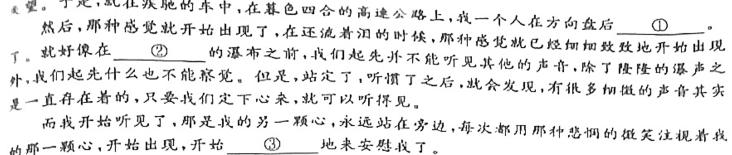 望。于是,就在疾驰的车中,在暮色四合的高速公路上,我一个人在方向盘后 ① 。
然后,那种感觉就开始出现了,在还流着泪的时候,那种感觉就已经细细致致地开始出现
了。就好像在 ② 的瀑布之前,我们起先并不能听见其他的声音,除了隆隆的瀑声之
外,我们起先什么也不能察觉。但是,站定了,听惯了之后,就会发现,有很多细微的声音其实
是一直存在着的,只要我们定下心来,就可以听得见。
而我开始听见了,那是我的另一颗心,永远站在旁边,每次都用那种悲悯的微笑注视着我
的那一颗心,开始出现,开始 ③ 地来安慰我了。